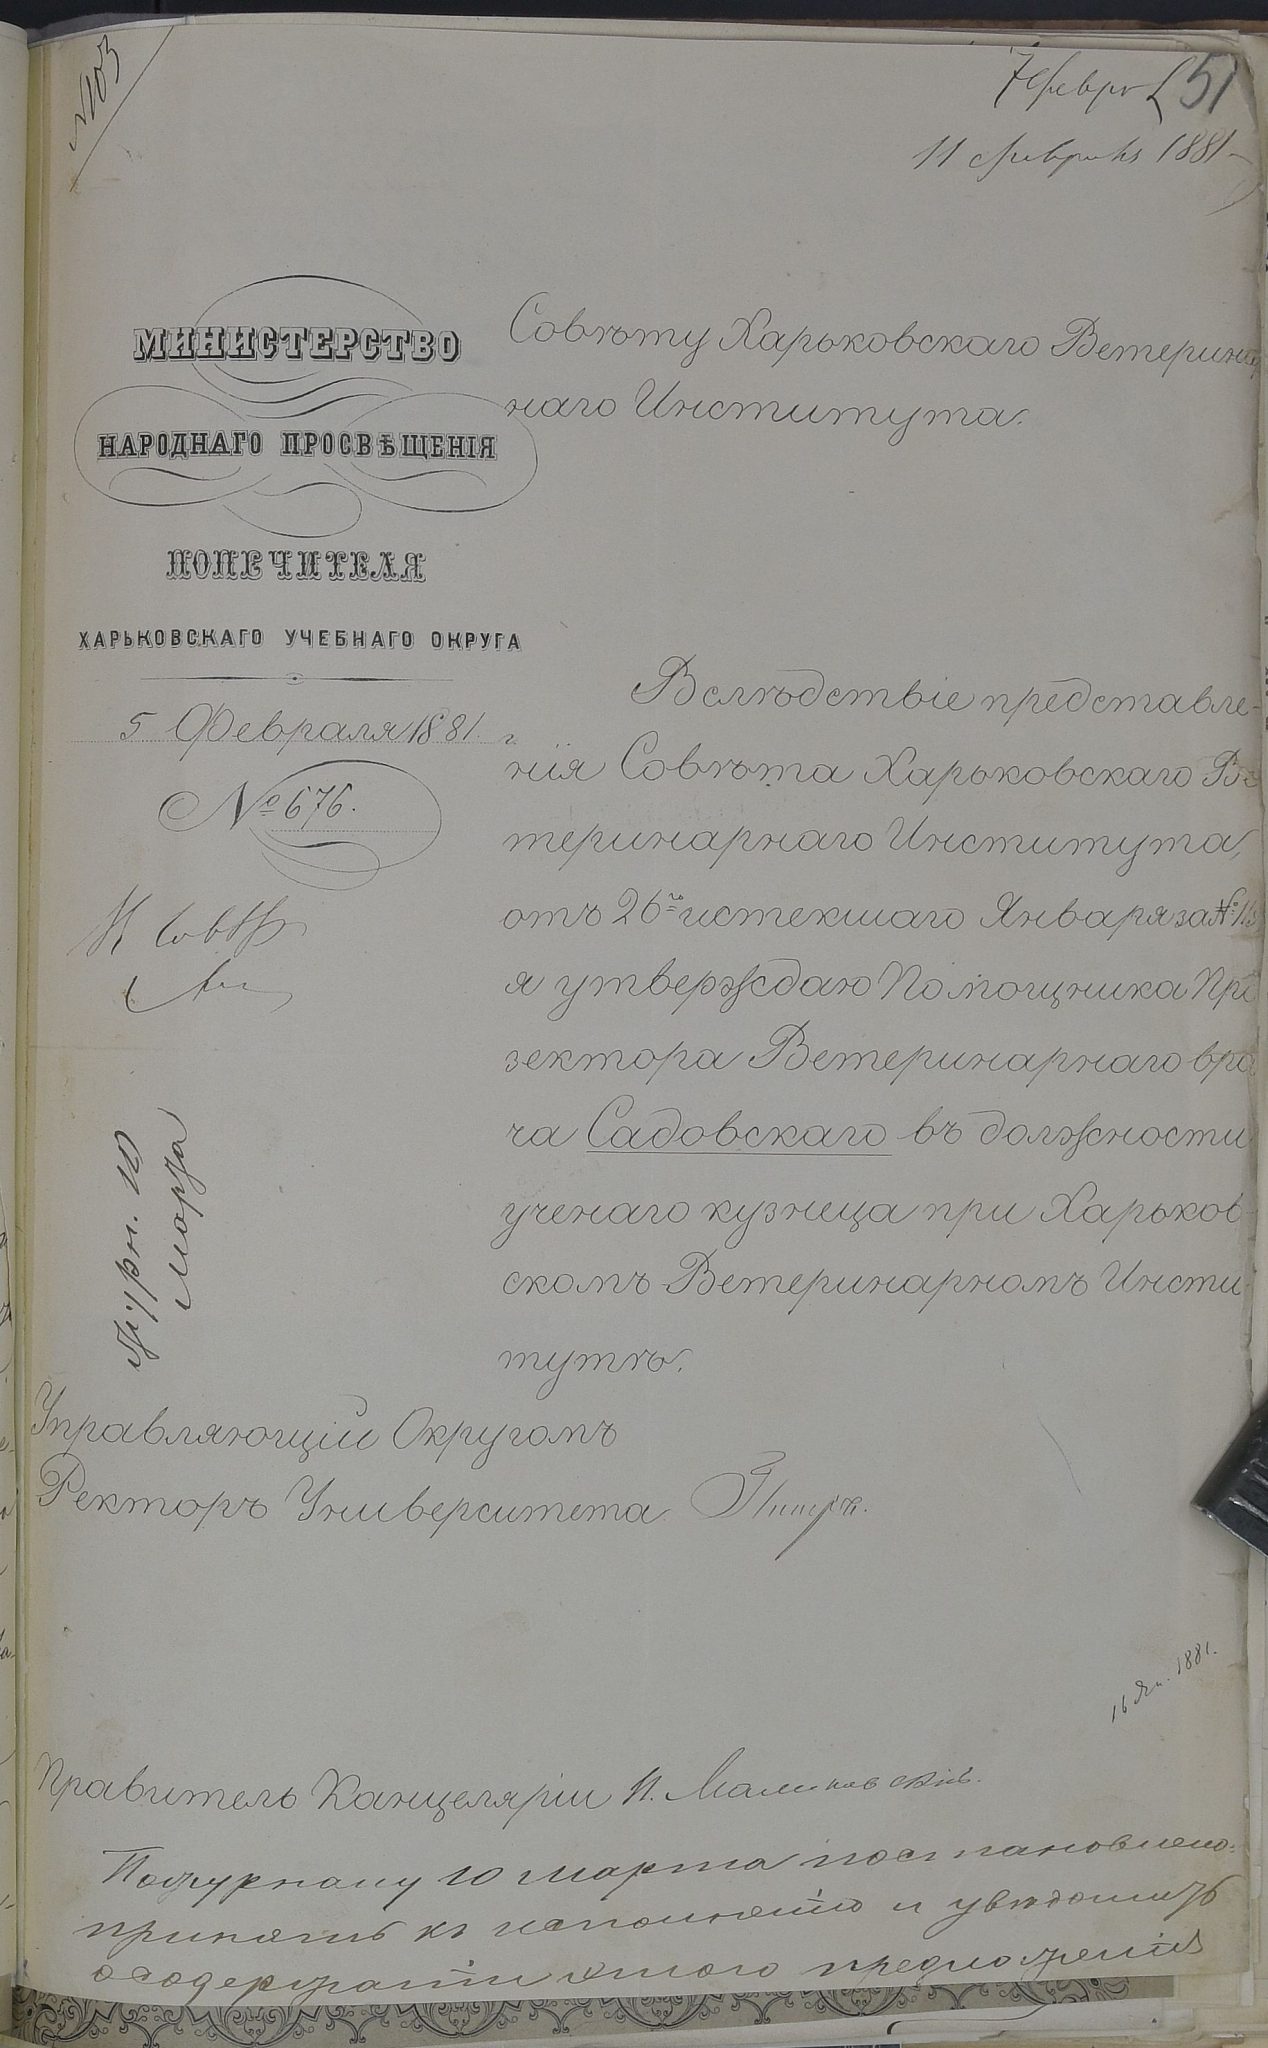 № 103
7 Февр
51
11 февраля 1881
МИНИСТЕРСТВО
НАРОДНАГО ПРОСВѢЩЕНІЯ
ПОПЕЧИТЕЛЯ
ХАРЬКОВСКАГО УЧЕБНАГО ОКРУГА
5 Февраля 1881 г.
№ 676.
Журн. 10
Марта
Совѣту Харьковскаго Ветеринар
наго Института.
Вслѣдствіе представле-
нія Совѣта Харьковскаго Ве
теринарнаго Института,
отъ 26го истекшаго Января за №
я утверждаю Помощника Про
зектора Ветеринарнаго вра
ча Садовскаго въ должности
ученаго кузнеца при Харьков
скомъ Ветеринарномъ Инсти
тутѣ.
Управляющій Округомъ
Ректоръ Университета
16 Ян. 1881.
Правитель Канцеляріи И. Малиновскій.
По журналу 10 марта постановлено:
принять къ исполненію и увѣдомить
о содержаніи этого предложенія